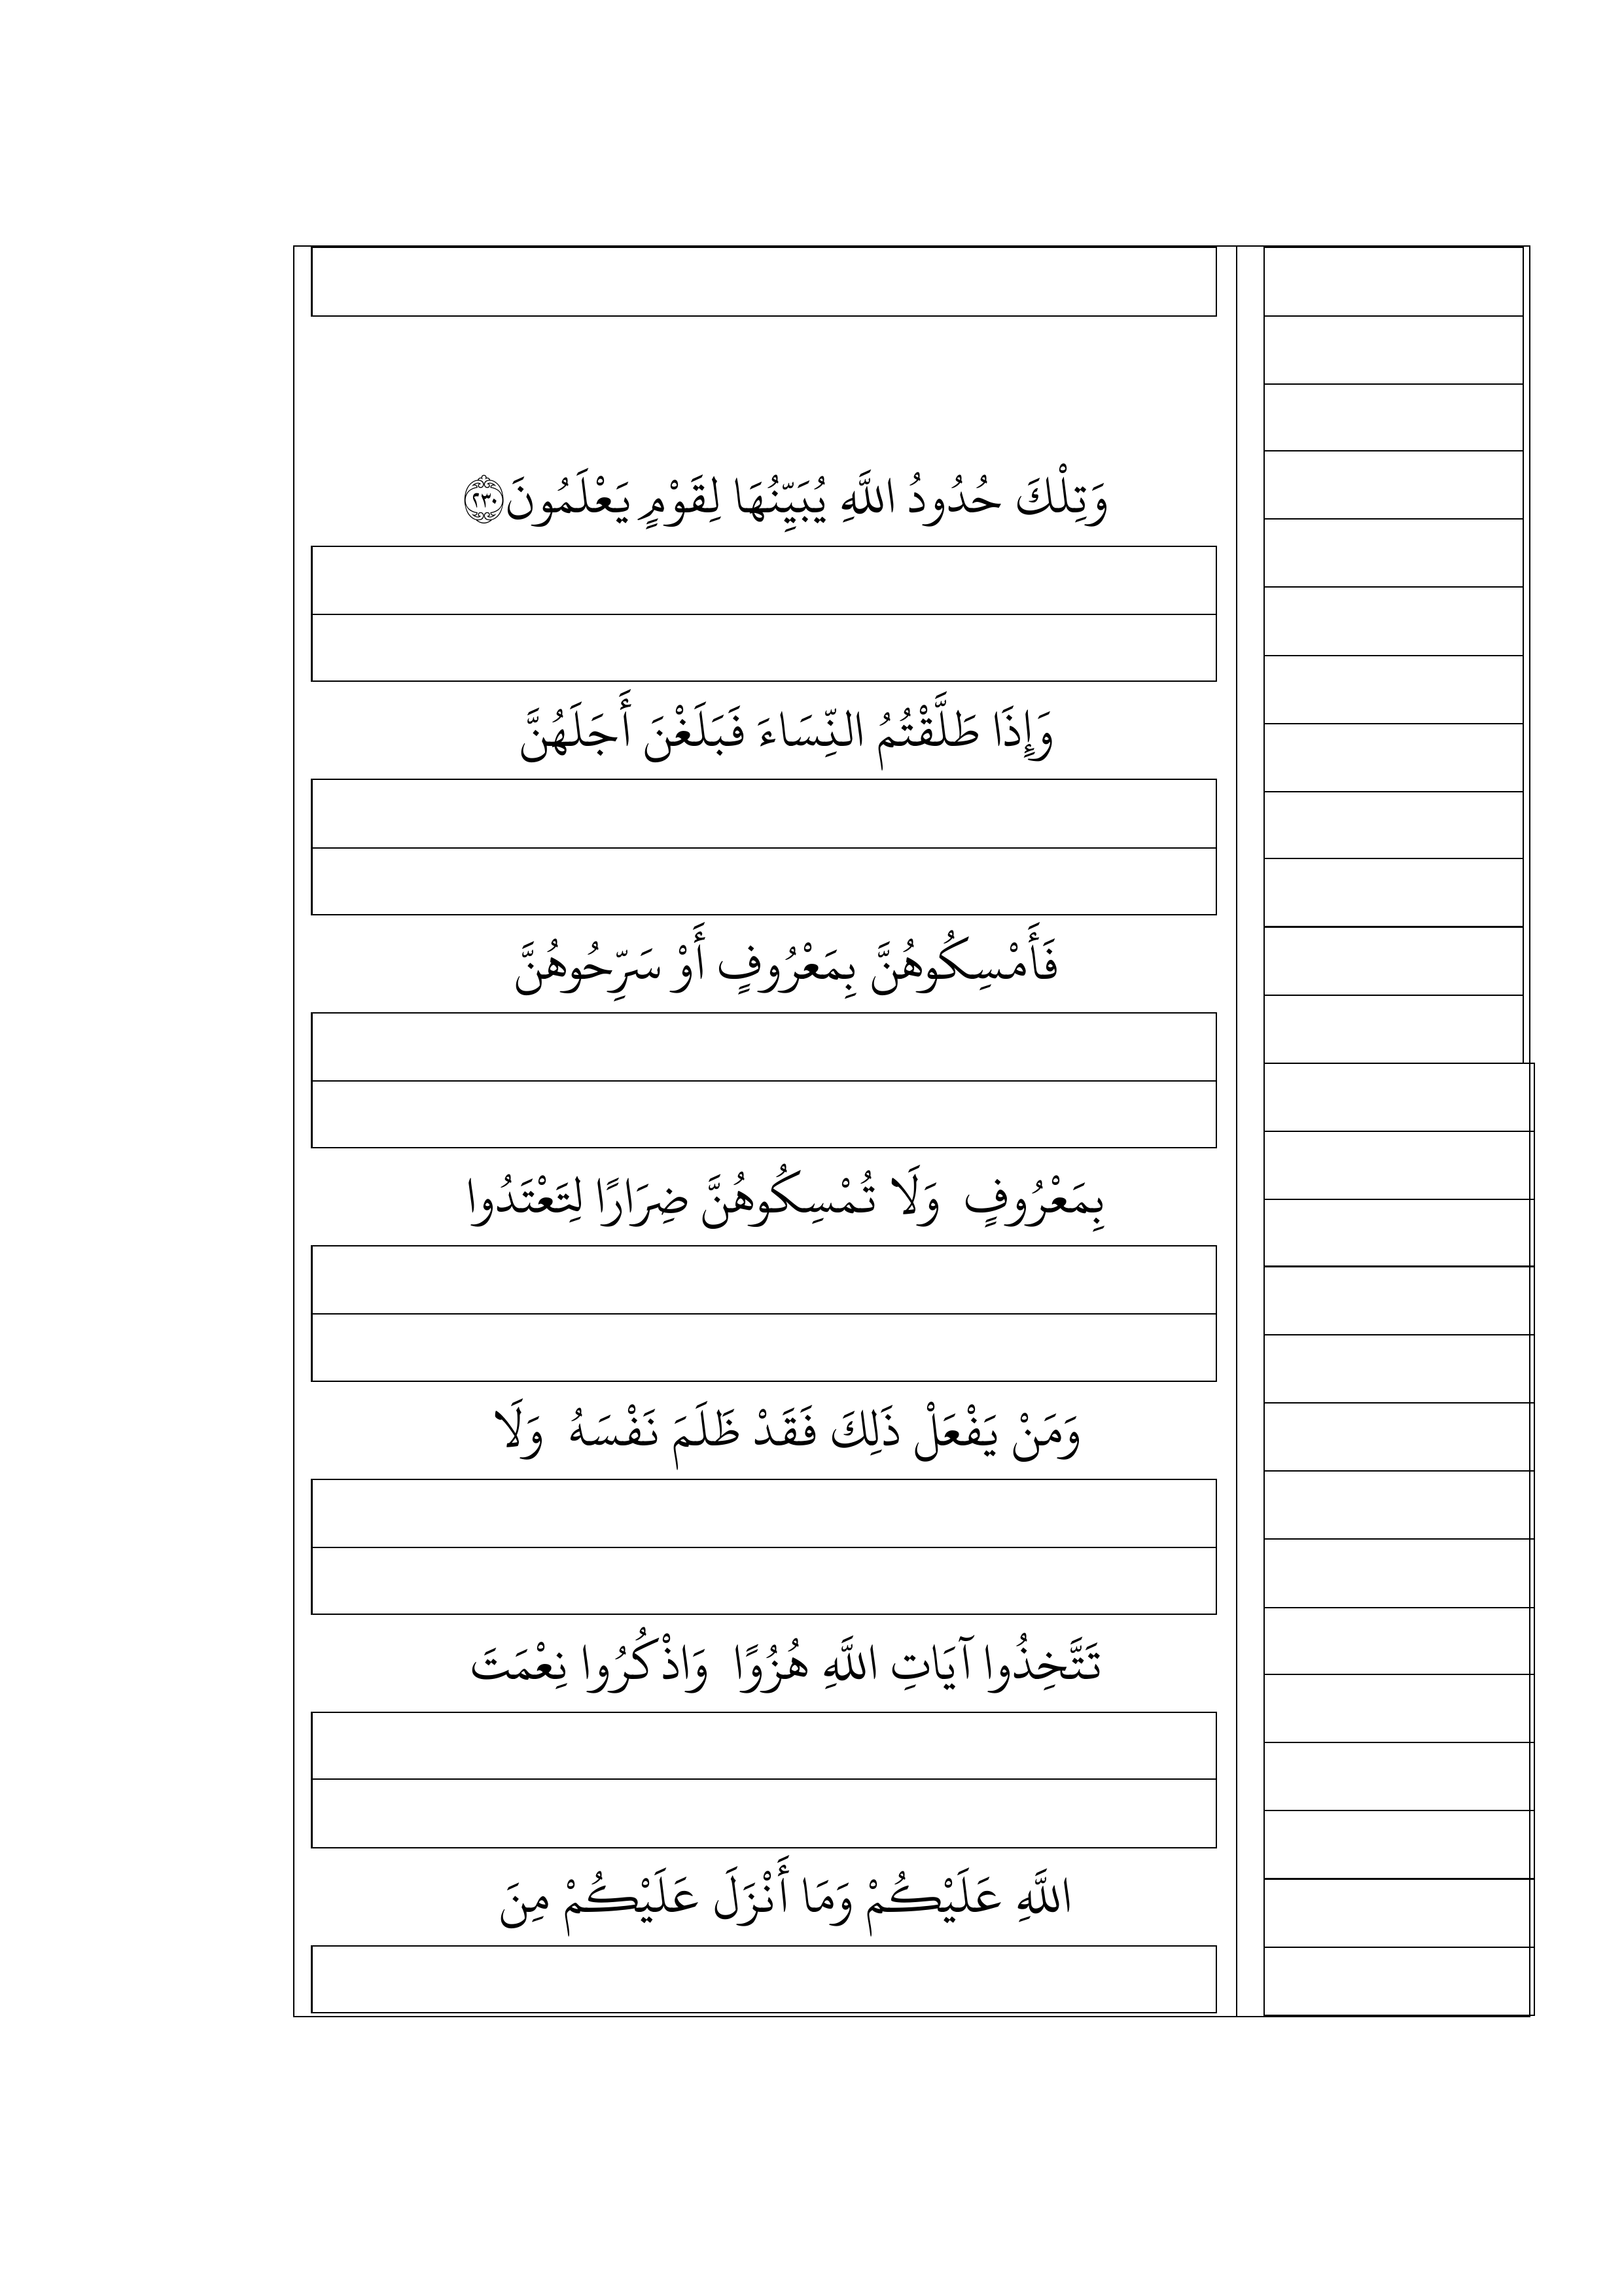 وَتِلْكَ حُدُودُ اللَّهِ يُبَيِّنُهَا لِقَوْمٍ يَعْلَمُونَ ۝٢٣٠
وَإِذَا طَلَّقْتُمُ النِّسَاءَ فَبَلَغْنَ أَجَلَهُنَّ
فَأَمْسِكُوهُنَّ بِمَعْرُوفٍ أَوْ سَرِّحُوهُنَّ
بِمَعْرُوفٍ وَلَا تُمْسِكُوهُنَّ ضِرَارًا لِتَعْتَدُوا
وَمَنْ يَفْعَلْ ذَلِكَ فَقَدْ ظَلَمَ نَفْسَهُ وَلَا
تَتَّخِذُوا آيَاتِ اللَّهِ هُزُوًا وَاذْكُرُوا نِعْمَتَ
اللَّهِ عَلَيْكُمْ وَمَا أَنْزَلَ عَلَيْكُمْ مِنَ